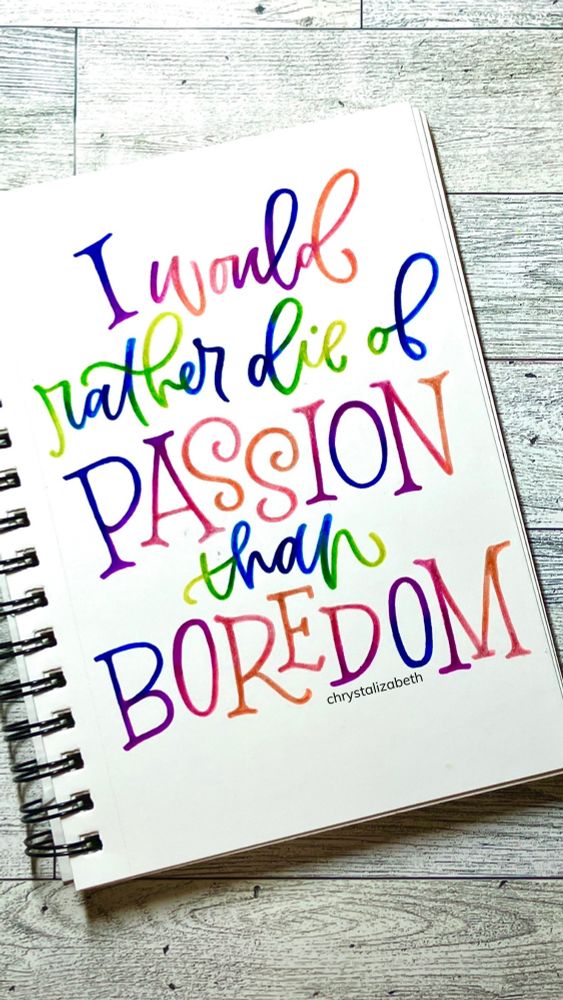 I would
rather die of
PASSION
than
BOREDOM
chrystalizabeth